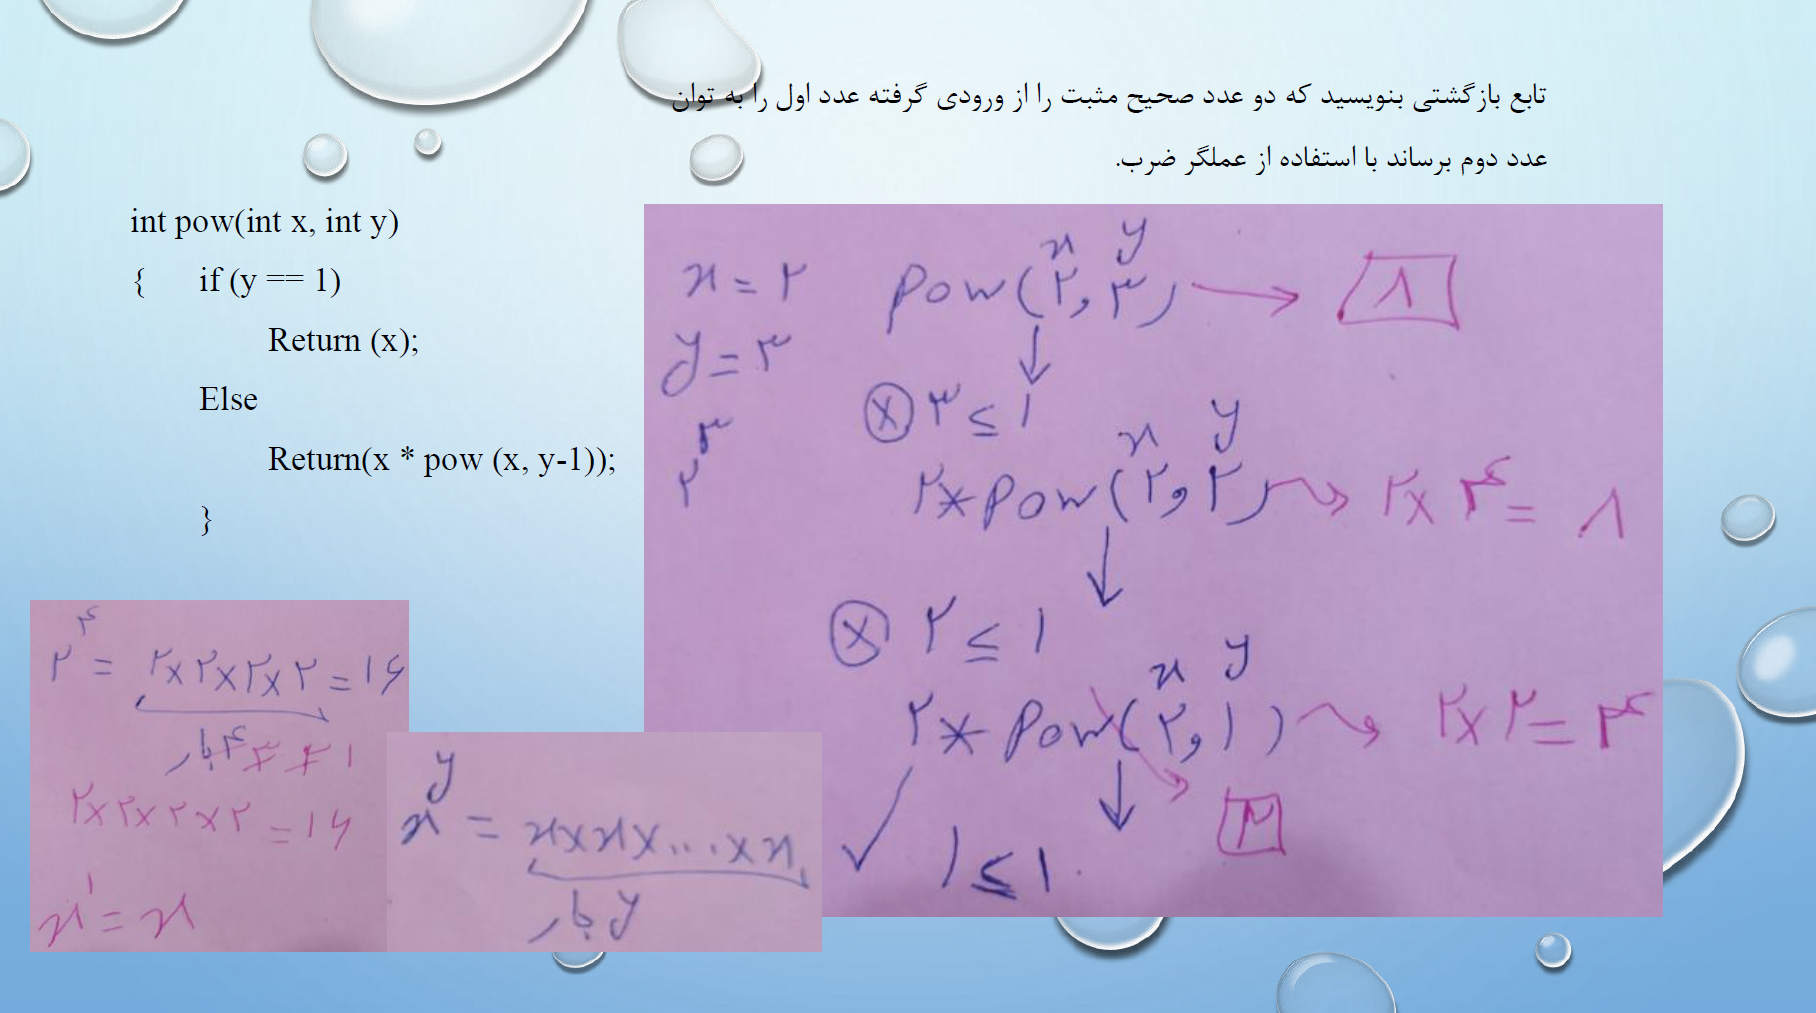 تابع بازگشتی بنویسید که دو عدد صحیح مثبت را از ورودی گرفته عدد اول را به توان
عدد دوم برساند با استفاده از عملگر ضرب.
int pow(int x, int y)
{ if (y == 1)
Return (x);
Else
Return(x * pow (x, y-1));
}
x = ۲
y = ۳
۲^۳
x y
pow(۲,۳) → ۸
↓
ⓧ ۳ ≤ ۱
x y
۲*pow(۲,۲) → ۲×۴ = ۸
↓
ⓧ ۲ ≤ ۱
x y
۲*pow(۲,۱) → ۲×۲ = ۴
↓ ۲
✓ ۱ ≤ ۱
۲^۴ = ۲×۲×۲×۲ = ۱۶
۴ بار ۳ ۲ ۱
۲×۲×۲×۲ = ۱۶
x^۱ = x
x^y = x×x×...×x
y بار